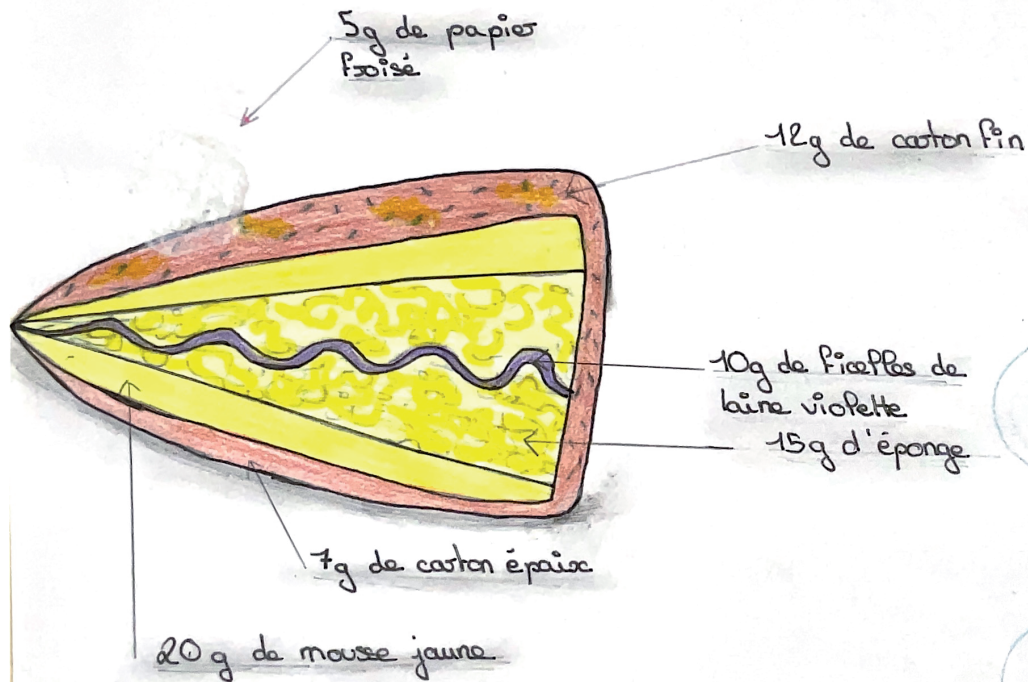 5g de papier
froisé
12g de carton fin
10g de ficelles de
laine violette
15g d'éponge
7g de carton épaix
20g de mousse jaune